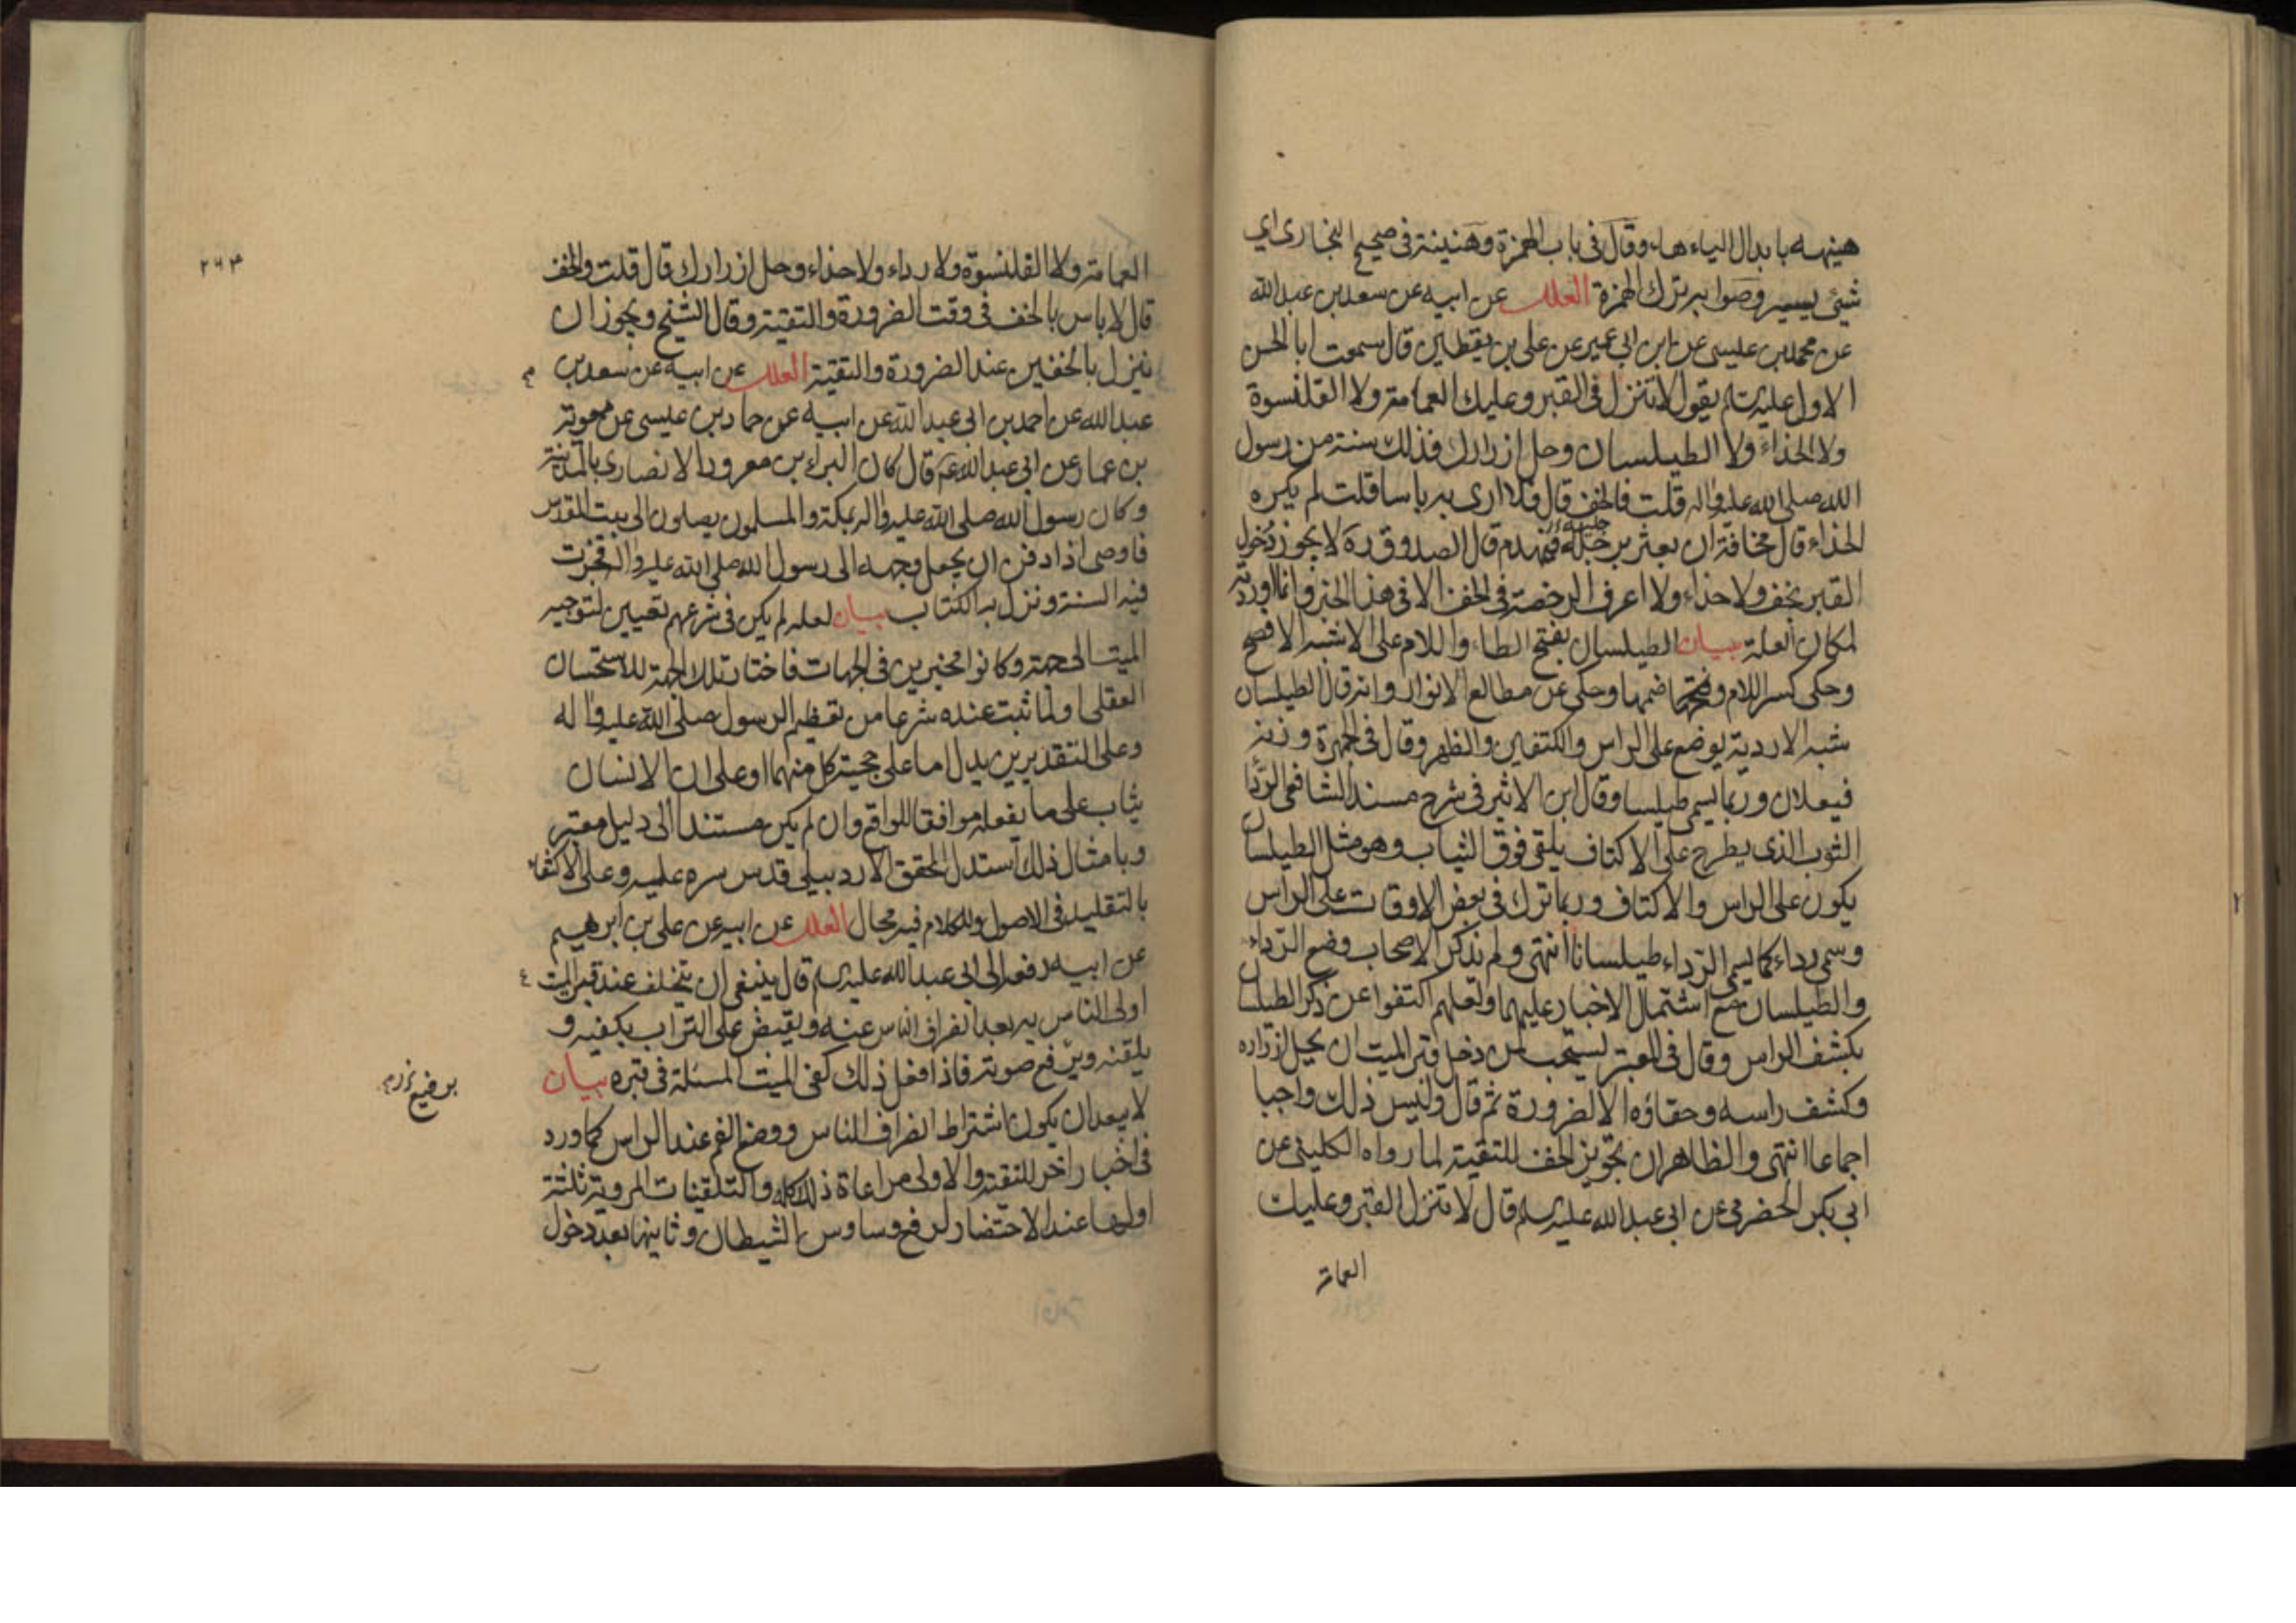 هنيهه بابدال الياء هاء وقال في باب الهمزة وهنيئة في صحيح البخاري اي
شيئ يسير وصوابه ترك الهمزة العلل عن ابيه عن سعد بن عبد الله
عن محمد بن عيسى عن ابن ابي عمير عن علي بن يقطين قال سمعت ابا الحسن
الاول عليه السلم يقول لا تنزل في القبر وعليك العمامة ولا القلنسوة
ولا الحذاء ولا الطيلسان وحل ازرارك فذلك سنة من رسول
الله صلى الله عليه واله قلت فالخف قال فلا ارى به باسا قلت لم يكره
الحذاء قال مخافة ان يعثر برجله فيهدم قال الصدوق ره لا يجوز دخول
القبر بخف ولا حذاء ولا اعرف الرخصة في الخف الا في هذا الخبر وانما اوردته
لمكان العلة بيان الطيلسان بفتح الطاء واللام على الاشبه الافصح
وحكى كسر اللام وضمها وحكى عن مطالع الانوار وانه قال الطيلسان
شبه الاردية يوضع على الراس والكتفين والظهر وقال في الجمهرة وزنه
فيعلان وربما يسمى طيلسا وقال ابن الاثير في شرح مسند الشافعي الردا
الثوب الذي يطرح على الاكتاف يلقى فوق الثياب وهو مثل الطيلسان
يكون على الراس والاكتاف وربما ترك في بعض الاوقات على الراس
وسمى رداء كما يسمى الرداء طيلسانا انتهى ولم يذكر الاصحاب وضع الرداء
والطيلسان مع اشتمال الاخبار عليهما ولعلهم اكتفوا عن ذكر الطيلسان
بكشف الراس وقال في المعتبر يستحب لمن دخل قبر الميت ان يحل ازراره
وكشف راسه وحفاؤه الا لضرورة ثم قال وليس ذلك واجبا
اجماعا انتهى والظاهر ان تجويز الخف للتقية لما رواه الكليني عن
ابي بكر الحضرمي عن ابي عبد الله عليه السلم قال لا تنزل القبر وعليك
العمامة
٢٦٣
العمامة ولا القلنسوة ولا رداء ولا حذاء وحل ازرارك قال قلت والخف
قال لا باس بالخف في وقت الضرورة والتقية وقال الشيخ ويجوز ان
ينزل بالخفين عند الضرورة والتقية العلل عن ابيه عن سعد بن
عبد الله عن احمد بن ابي عبد الله عن ابيه عن حماد بن عيسى عن معوية
بن عمار عن ابي عبد الله عم قال كان البراء بن معرور الانصاري بالمدينة
وكان رسول الله صلى الله عليه واله بمكة والمسلمون يصلون الى بيت المقدس
فاوصى اذا دفن ان يجعل وجهه الى رسول الله صلى الله عليه واله فجرت
فيه السنة ونزل به الكتاب بيان لعله لم يكن في شرعهم تعيين لتوجيه
الميت الى جهة وكانوا مخيرين في الجهات فاختار تلك الجهة للاستحسان
العقلي او لما ثبت عنده شرعا من تعظيم الرسول صلى الله عليه واله
وعلى التقديرين يدل اما على حجية كل منهما او على ان الانسان
يثاب على ما يفعله موافقا للواقع وان لم يكن مستندا الى دليل معتبر
وبامثال ذلك استدل المحقق الاردبيلي قدس سره عليه وعلى الاكتفاء
بالتقليد في الاصول وللكلام فيه مجال العلل عن ابيه عن علي بن ابرهيم
عن ابيه رفعه الى ابي عبد الله عليه السلم قال ينبغي ان يتخلف عند قبر الميت
اولى الناس به بعد انصراف الناس عنه ويقبض على التراب بكفيه و
يلقنه ويرفع صوته فاذا فعل ذلك كفى الميت المسئلة في قبره بيان
لا يبعد ان يكون اشتراط انصراف الناس ووضع الفم عند الراس كما ورد
في اخبار اخر للتقية والاولى مراعاة ذلك كله والتلقينات المروية ثلثة
اولها عند الاحتضار لرفع وساوس الشيطان وثانيها بعد دخول